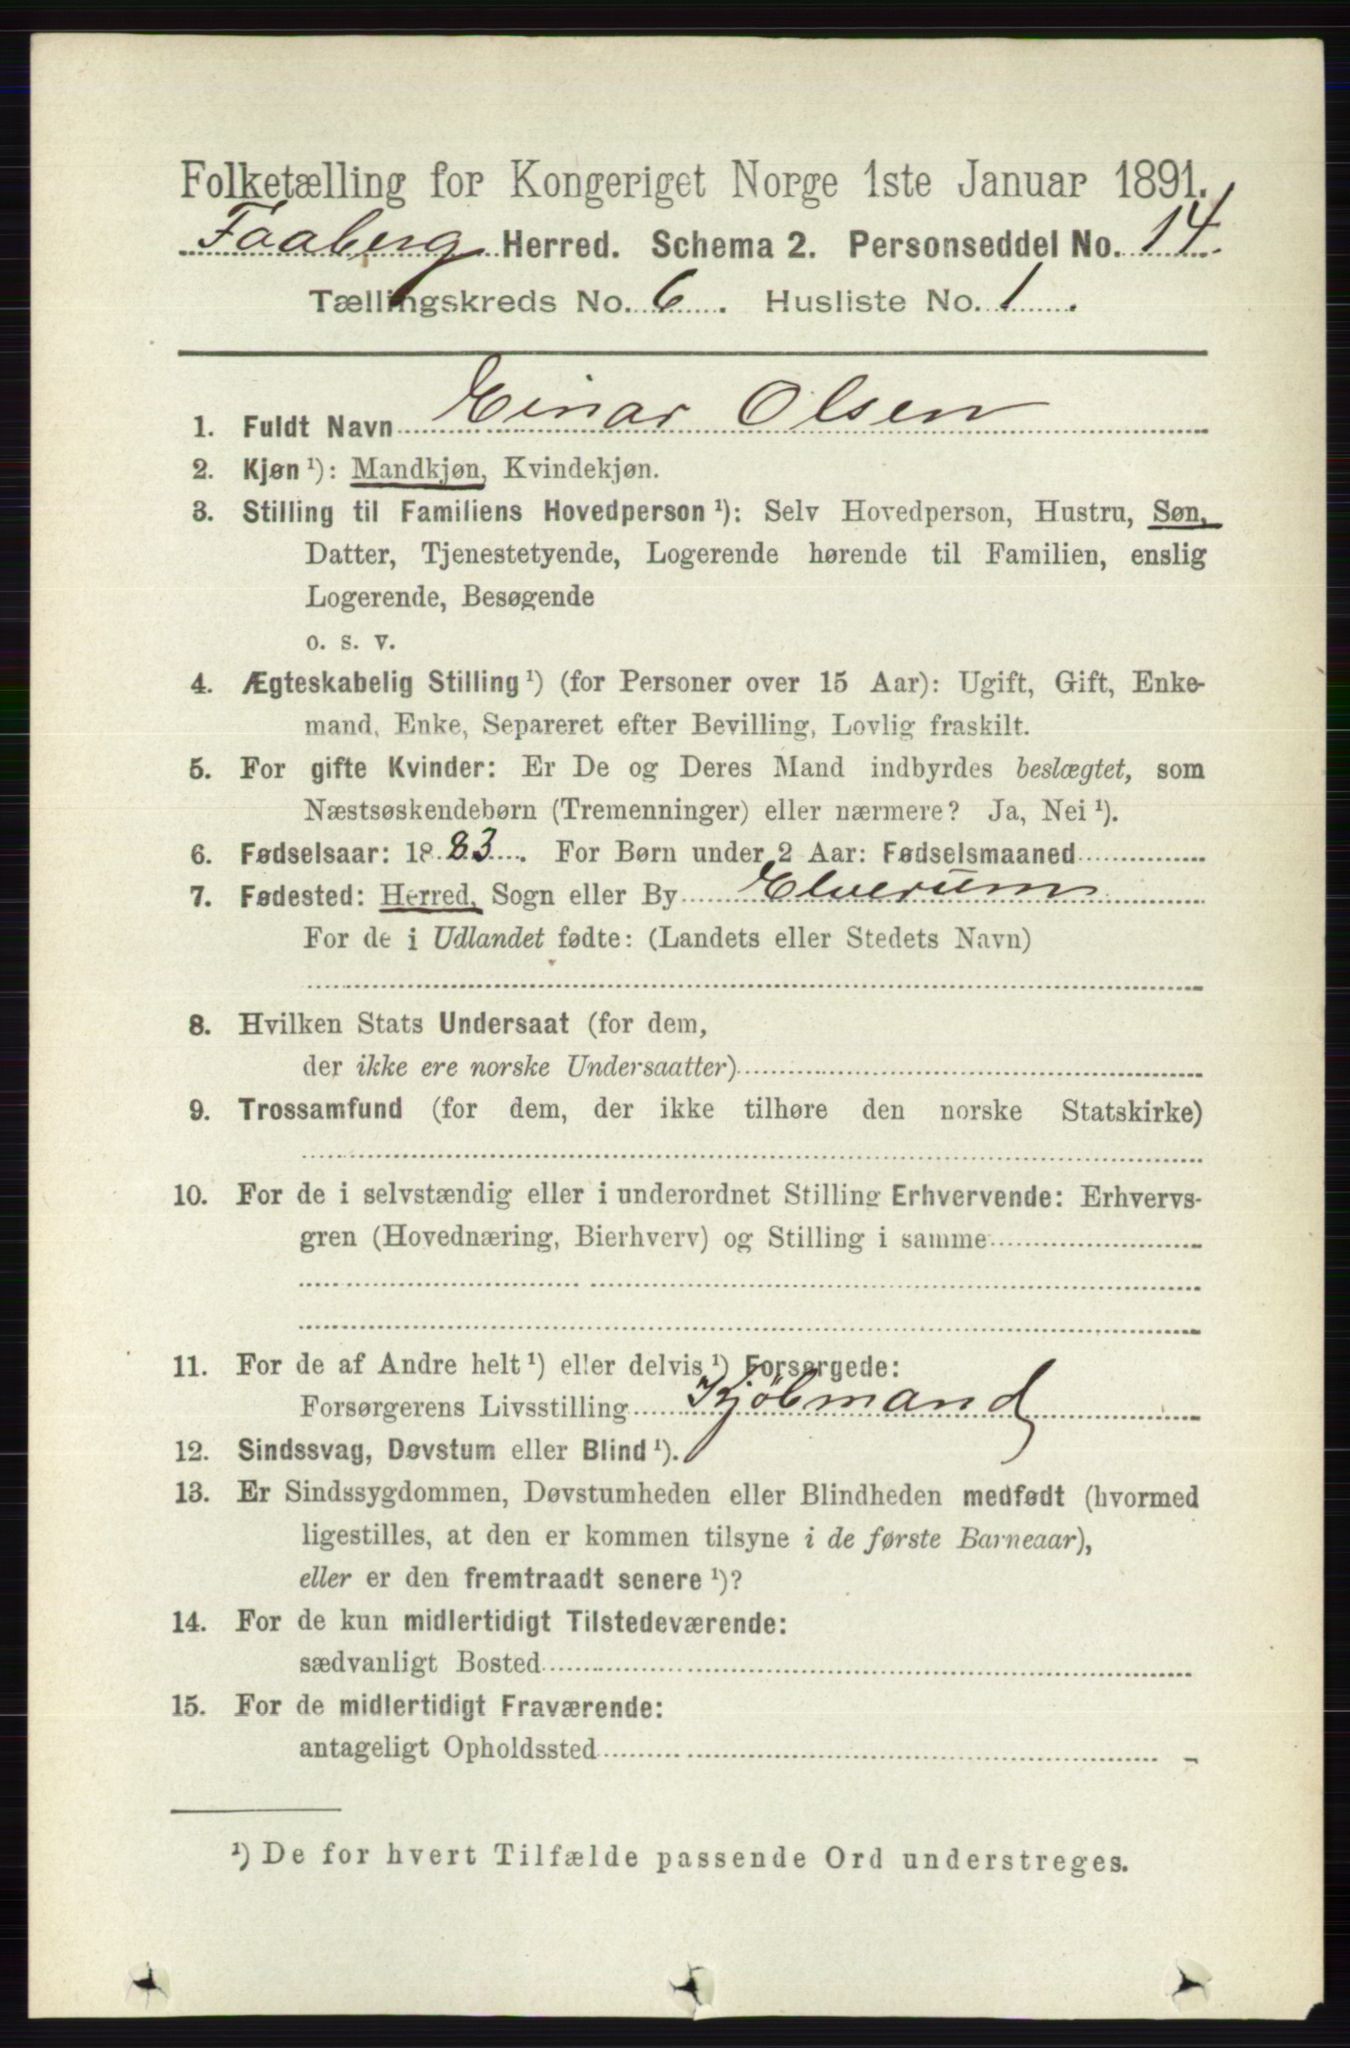 Folketælling for Kongeriget Norge 1ste Januar 1891.
Faaberg Herred. Schema 2. Personseddel No. 14.
Tællingskreds No. 6. Husliste No. 1.
1. Fuldt Navn Einar Olsen
2. Kjøn ¹): Mandkjøn, Kvindekjøn.
3. Stilling til Familiens Hovedperson ¹): Selv Hovedperson, Hustru, Søn,
Datter, Tjenestetyende, Logerende hørende til Familien, enslig
Logerende, Besøgende
o. s. v.
4. Ægteskabelig Stilling ¹) (for Personer over 15 Aar): Ugift, Gift, Enke-
mand, Enke, Separeret efter Bevilling, Lovlig fraskilt.
5. For gifte Kvinder: Er De og Deres Mand indbyrdes beslægtet, som
Næstsøskendebørn (Tremenninger) eller nærmere? Ja, Nei ¹).
6. Fødselsaar: 1883. For Børn under 2 Aar: Fødselsmaaned
7. Fødested: Herred, Sogn eller By Elverum
For de i Udlandet fødte: (Landets eller Stedets Navn)
8. Hvilken Stats Undersaat (for dem,
der ikke ere norske Undersaatter)
9. Trossamfund (for dem, der ikke tilhøre den norske Statskirke)
10. For de i selvstændig eller i underordnet Stilling Erhvervende: Erhvervs-
gren (Hovednæring, Bierhverv) og Stilling i samme
11. For de af Andre helt ¹) eller delvis ¹) Forsørgede:
Forsørgerens Livsstilling Kjöbmand
12. Sindssvag, Døvstum eller Blind ¹).
13. Er Sindssygdommen, Døvstumheden eller Blindheden medfødt (hvormed
ligestilles, at den er kommen tilsyne i de første Barneaar),
eller er den fremtraadt senere ¹)?
14. For de kun midlertidigt Tilstedeværende:
sædvanligt Bosted
15. For de midlertidigt Fraværende:
antageligt Opholdssted
¹) De for hvert Tilfælde passende Ord understreges.